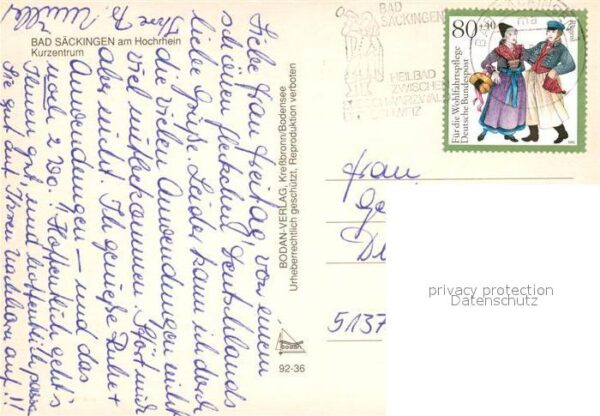 BAD SÄCKINGEN am Hochrhein
Kurzentrum
Liebe Frau Freitag, von einem
schönen Fleckchen Deutschlands
liebe Grüße. Leider kann ich doch
die vielen Anwendungen nicht
viel mitbekommen. Stört mich
aber nicht. Ich genieße Ruhe +
Anwendungen – und das
noch 2 Wo. Hoffentlich geht's
Ihnen gut, und hoffentlich passen
Sie gut auf Ihren Nachbarn auf!!
Ihre
BODAN-VERLAG, Kreßbronn/Bodensee
Urheberrechtlich geschützt, Reproduktion verboten
BODAN
92-36
BAD
SÄCKINGEN
HEILBAD
ZWISCHEN
80+40
Rügen
Für die Wohlfahrtspflege
Deutsche Bundespost
Frau
5137
privacy protection
Datenschutz